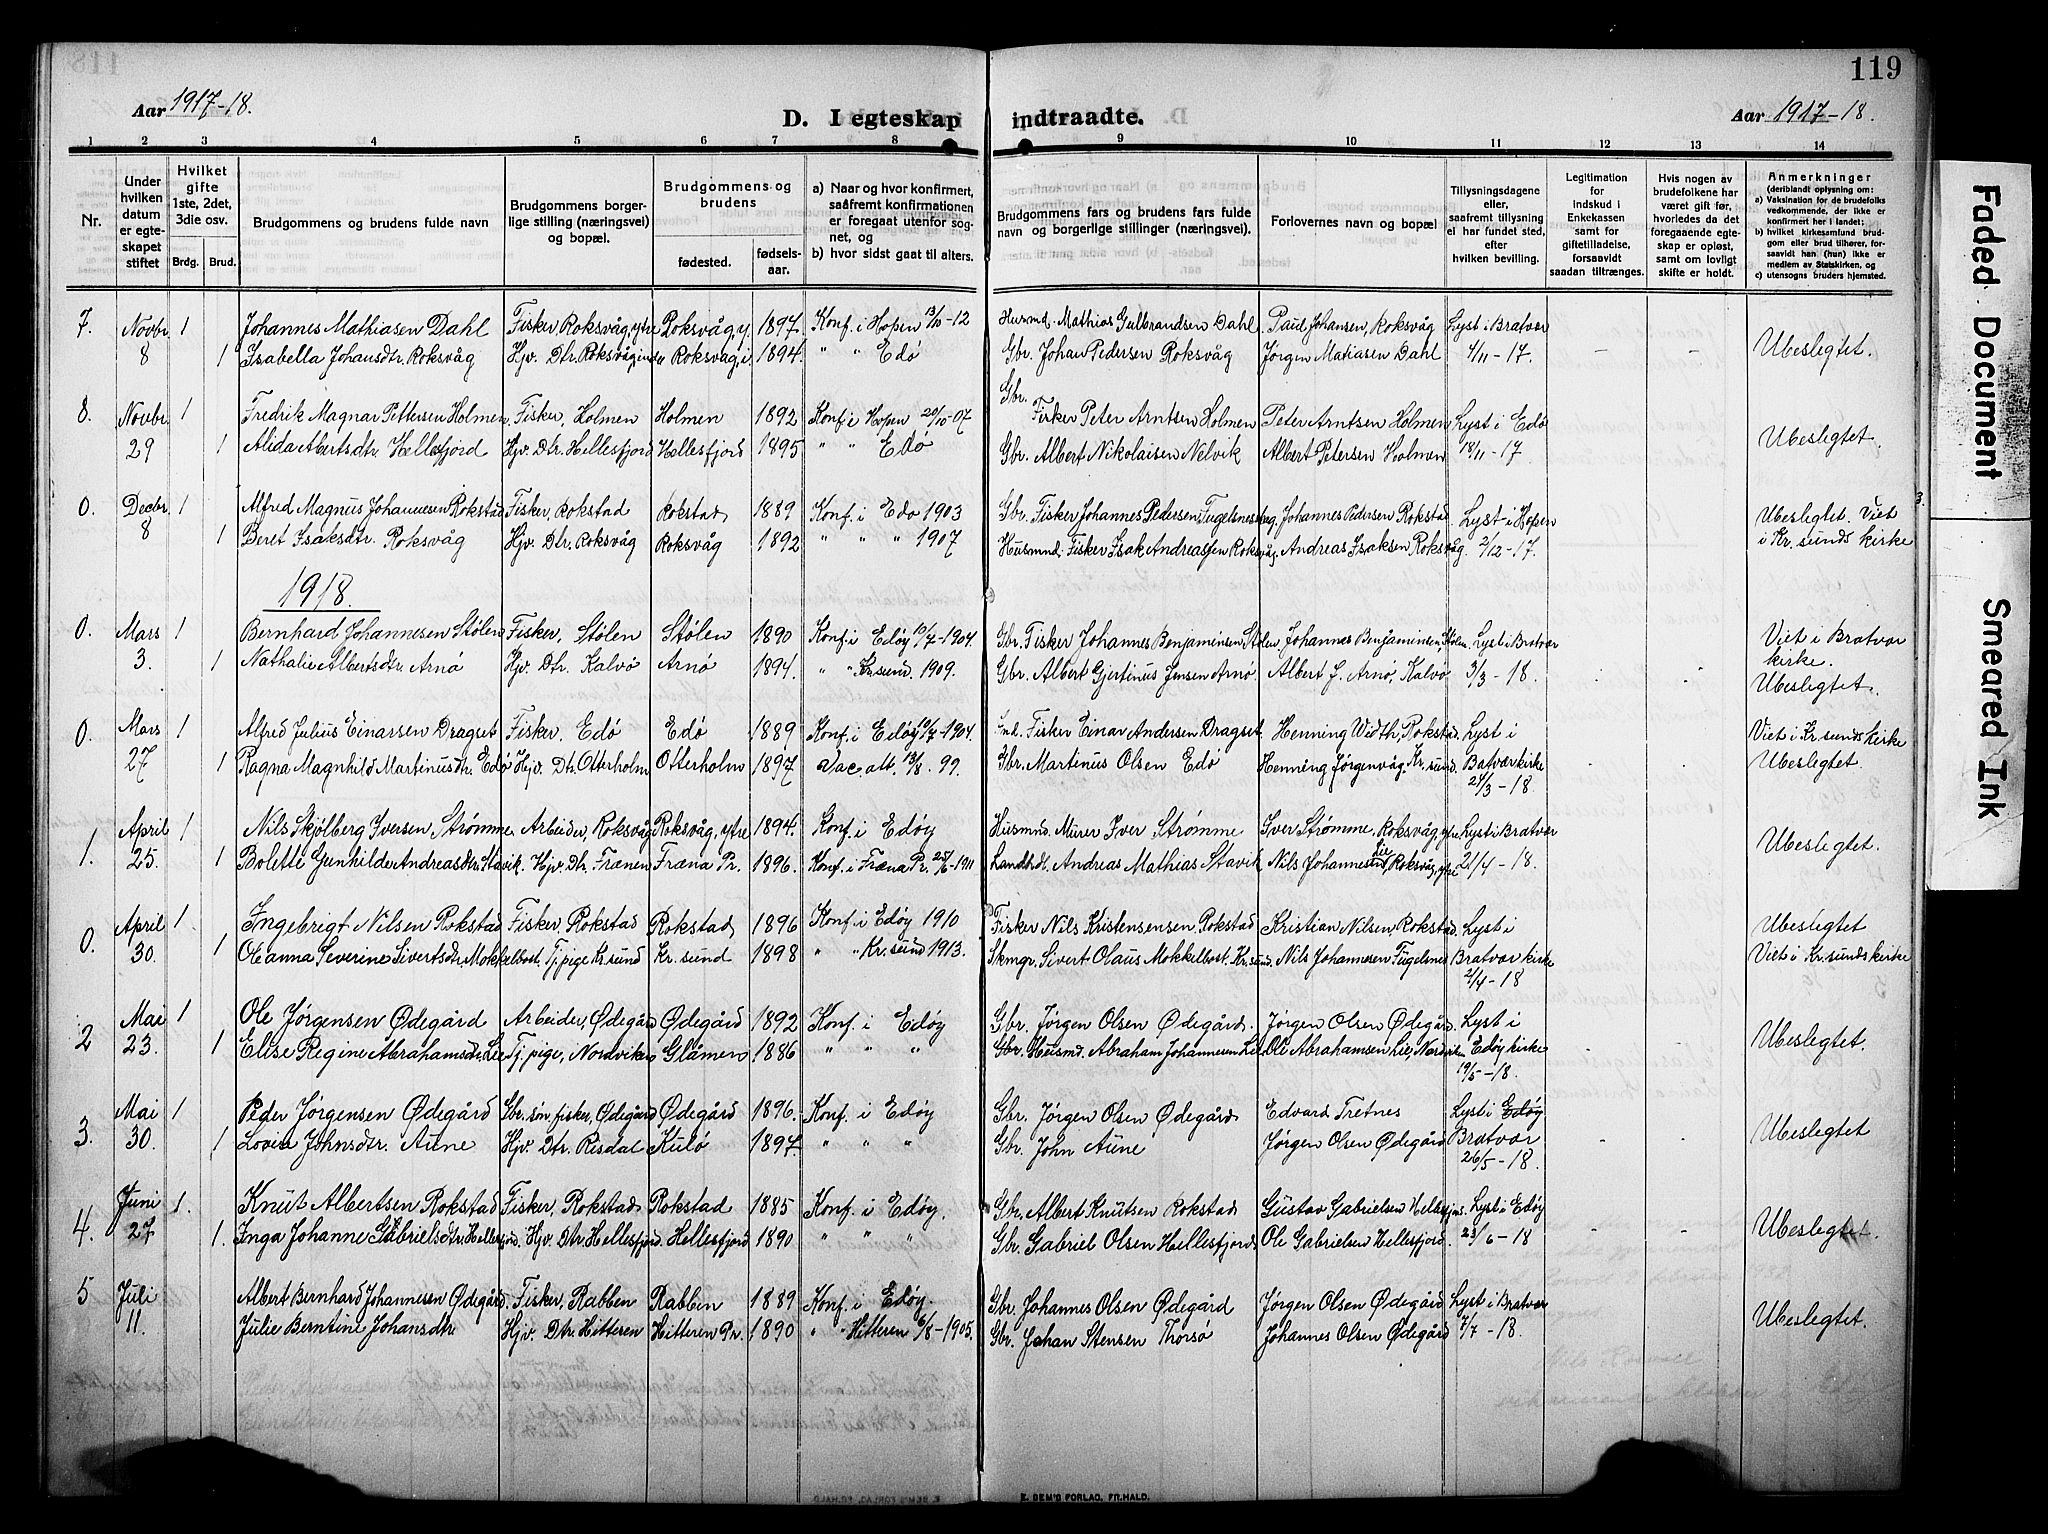 119
Aar 1917-18.
D. I egteskap indtraadte.
Aar 1917-18.
1 2 3 4 5 6 7 8 9 10 11 12 13 14
Nr.
Under hvilken datum er egteskapet stiftet
Hvilket gifte 1ste, 2det, 3die osv.
Brdg. Brud.
Brudgommens og brudens fulde navn
Brudgommens borgerlige stilling (næringsvei) og bopæl.
Brudgommens og brudens
fødested. fødselsaar.
a) Naar og hvor konfirmert, saafremt konfirmationen er foregaat utenfor sognet, og
b) hvor sidst gaat til alters.
Brudgommens fars og brudens fars fulde navn og borgerlige stillinger (næringsvei).
Forlovernes navn og bopæl
Tillysningsdagene eller, saafremt tillysning ei har fundet sted, efter hvilken bevilling.
Legitimation for indskud i Enkekassen samt for giftetilladelse, forsaavidt saadan tiltrænges.
Hvis nogen av brudefolkene har været gift før, hvorledes da det foregaaende egteskap er opløst, samt om lovligt skifte er holdt.
Anmerkninger (deriblandt oplysning om: a) Vaksination for de brudefolks vedkommende, der ikke er konfirmert her i landet; b) hvilket kirkesamfund brudgom eller brud tilhører, forsaavidt han (hun) ikke er medlem av Statskirken, og c) utensogns bruders hjemsted.
7. Novbr 1 Johannes Mathiasen Dahl Fisker, Roksvåg, ytre Roksvåg, y. 1897 Konf. i Hopen 13/10-12 Husmd. Mathias Gulbrandsen Dahl Paul Johansen, Roksvåg Lyst i Bratvær
8 1 Isabella Johansdtr. Roksvåg Hjv. Dtr. Roksvåg, indre Roksvåg, i. 1894. " " Edø Gbr. Johan Pedersen Roksvåg Jørgen Matiasen Dahl 4/11-17. - - Ubeslegtet.
Gbr.
8. Novbr. 1 Fredrik Magnar Pettersen Holmen Fisker, Holmen Holmen 1892 Konf. i Hopen 20/10-07 Fisker Peter Arntsen Holmen Peter Arntsen Holmen Lyst i Edø
29 1 Alida Abertsdtr. Hellesfjord Hjv. Dtr. Hellesfjord Hellesfjord 1895 " " Edø Gbr. Albert Nikolaisen Nelvik Albert Petersen Holmen 18/11-17 Ubeslegtet.
0. Decbr. 1 Alfred Magnus Johannesen Rokstad Fisker, Rokstad Rokstad 1889 Konf. i Edø 1903 Gbr. Fisker Johannes Pedersen, Fugelsnes Johannes Pedersen Rokstad Lyst i Hopen Ubeslegtet. Viet
8 1 Beret Isaksdtr. Roksvåg Hjv. Dtr. Roksvåg Roksvåg 1892 " " " 1907 Husmnd. Fisker Isak Andreassen Roksvåg, Andreas Isaksen Roksvåg 2/12-17. i Kr.sunds kirke
1918.
0. Mars 1 Bernhard Johannesen Stølen Fisker, Stølen Stølen 1890 Konf. i Edøy 10/7-1904 Gbr. Fisker Johannes Benjaminsen, Stølen, Johannes Benjaminsen, Stølen. Lyst i Bratvær Viet i Bratvær
3. 1 Nathalie Albertsdtr. Arnø Hjv. Dtr. Kalvø Arnø 1894. " " Kr.sund 1909. Gbr. Albert Gjertinus Jensen Arnø Albert J. Arnø, Kalvø 3/3-18. kirke.
Ubeslegtet.
0. Mars 1 Alfred Julius Einarsen Dragset Fisker, Edø Edø 1889 Konf. i Edøy 10/7-1904. Fisker Einar Andersen Dragset Henning Width, Rokstad. Lyst i Viet i Kr.sunds kirke
27 1 Ragna Magnhild Martinusdtr. Edø Hjv. Dtr. Otterholm Otterholm 1897 Vac. att. 13/8. 99. Gbr. Martinus Olsen Edø Henning Jørgenvåg. Kr.sund. Bratvær kirke Ubeslegtet.
24/3-18.
1. April 1 Nils Skjølberg Iversen, Strømme Arbeider, Roksvåg Roksvåg, ytre 1894. Konf. i Edøy Husmnd. Murer Iver Strømme Iver Strømme, Roksvåg, ytre Lyst i Bratvær
25. 1 Bolette Gunhilde Andreasdtr. Stavik. Hjv. Dtr. Frænen Fræna Pr. 1896. Konf. i Fræna Pr. 25/6-1911 Landhdl. Andreas Mathias Stavik Nils Johannes Lie, Roksvåg, ytre 21/4-18. Ubeslegtet.
0. April 1 Ingebrigt Nilsen Rokstad Fisker, Rokstad Rokstad 1896 Konf. i Edøy 1910 Fisker Nils Kristensensen Rokstad Kristian Nilsen, Rokstad. Lyst i Ubeslegtet
30. 1 Oleanna Severine Sivertsdtr. Mokkelbost. Tj.pige Kr.sund Kr.sund 1898 " " Kr.sund 1913. Skmgr. Sivert Olaus Mokkelbost. Kr.sund. Nils Johannesen Fugelsnes Bratvær kirke Viet i Kr.sunds kirke
2/4-18
2 Mai 1 Ole Jørgensen Ødegård Arbeider, Ødegård Ødegård 1892 Konf. i Edøy Gbr. Jørgen Olsen Ødegård. Jørgen Olsen Ødegård. Lyst i
23. 1 Elise Regine Abrahamsdtr. Lie Tj.pige, Nordviken Glåmen 1886 " " " Gbr. Husmd. Abraham Johannesen Lie Ole Abrahamsen Lie, Nordviken Edøy kirke Ubeslegtet.
19/5-18.
3. Mai 1 Peder Jørgensen Ødegård Gbr. søn, fisker, Ødegård Ødegård 1896. Konf. i Edøy Gbr. Jørgen Olsen Ødegård Edvard Tretnes Lyst i Edøy
30. 1 Lovise Johnsdtr. Aune Hjv. Dtr. Risdal Kulø 1897. " " " Gbr. John Aune Jørgen Olsen Ødegård Bratvær Ubeslegtet
26/5-18.
4. Juni 1. Knut Albertsen Rokstad Fisker, Rokstad Rokstad 1885 Konf. i Edøy. Gbr. Albert Knutsen Rokstad Gustav Gabrielsen Hellesfjord. Lyst i Edøy
27 1. Inga Johanne Gabrielsdtr. Hellesfjord. Hjv. Dtr. Hellesfjord. Hellesfjord 1890 " " " Gbr. Gabriel Olsen Hellesfjord Ole Gabrielsen Hellesfjord. 23/6-18 Ubeslegtet.
5 Juli Albert Bernhard Johannesen Ødegård. Fisker, Rabben Rabben 1889 Konf. i Edøy. Gbr. Johannes Olsen Ødegård Jørgen Olsen Ødegård Lyst i Bratvær
11. Julie Berntine Johansdtr Hjv. Dtr. Hitteren Hitteren Pr. 1890 " " Hitteren 6/8-1905. Gbr. Johan Stensen Thorsø Johannes Olsen Ødegård 7/7-18. Ubeslegtet.
E. SEM'S FORLAG, FR.HALD.
Faded Document
Smeared Ink